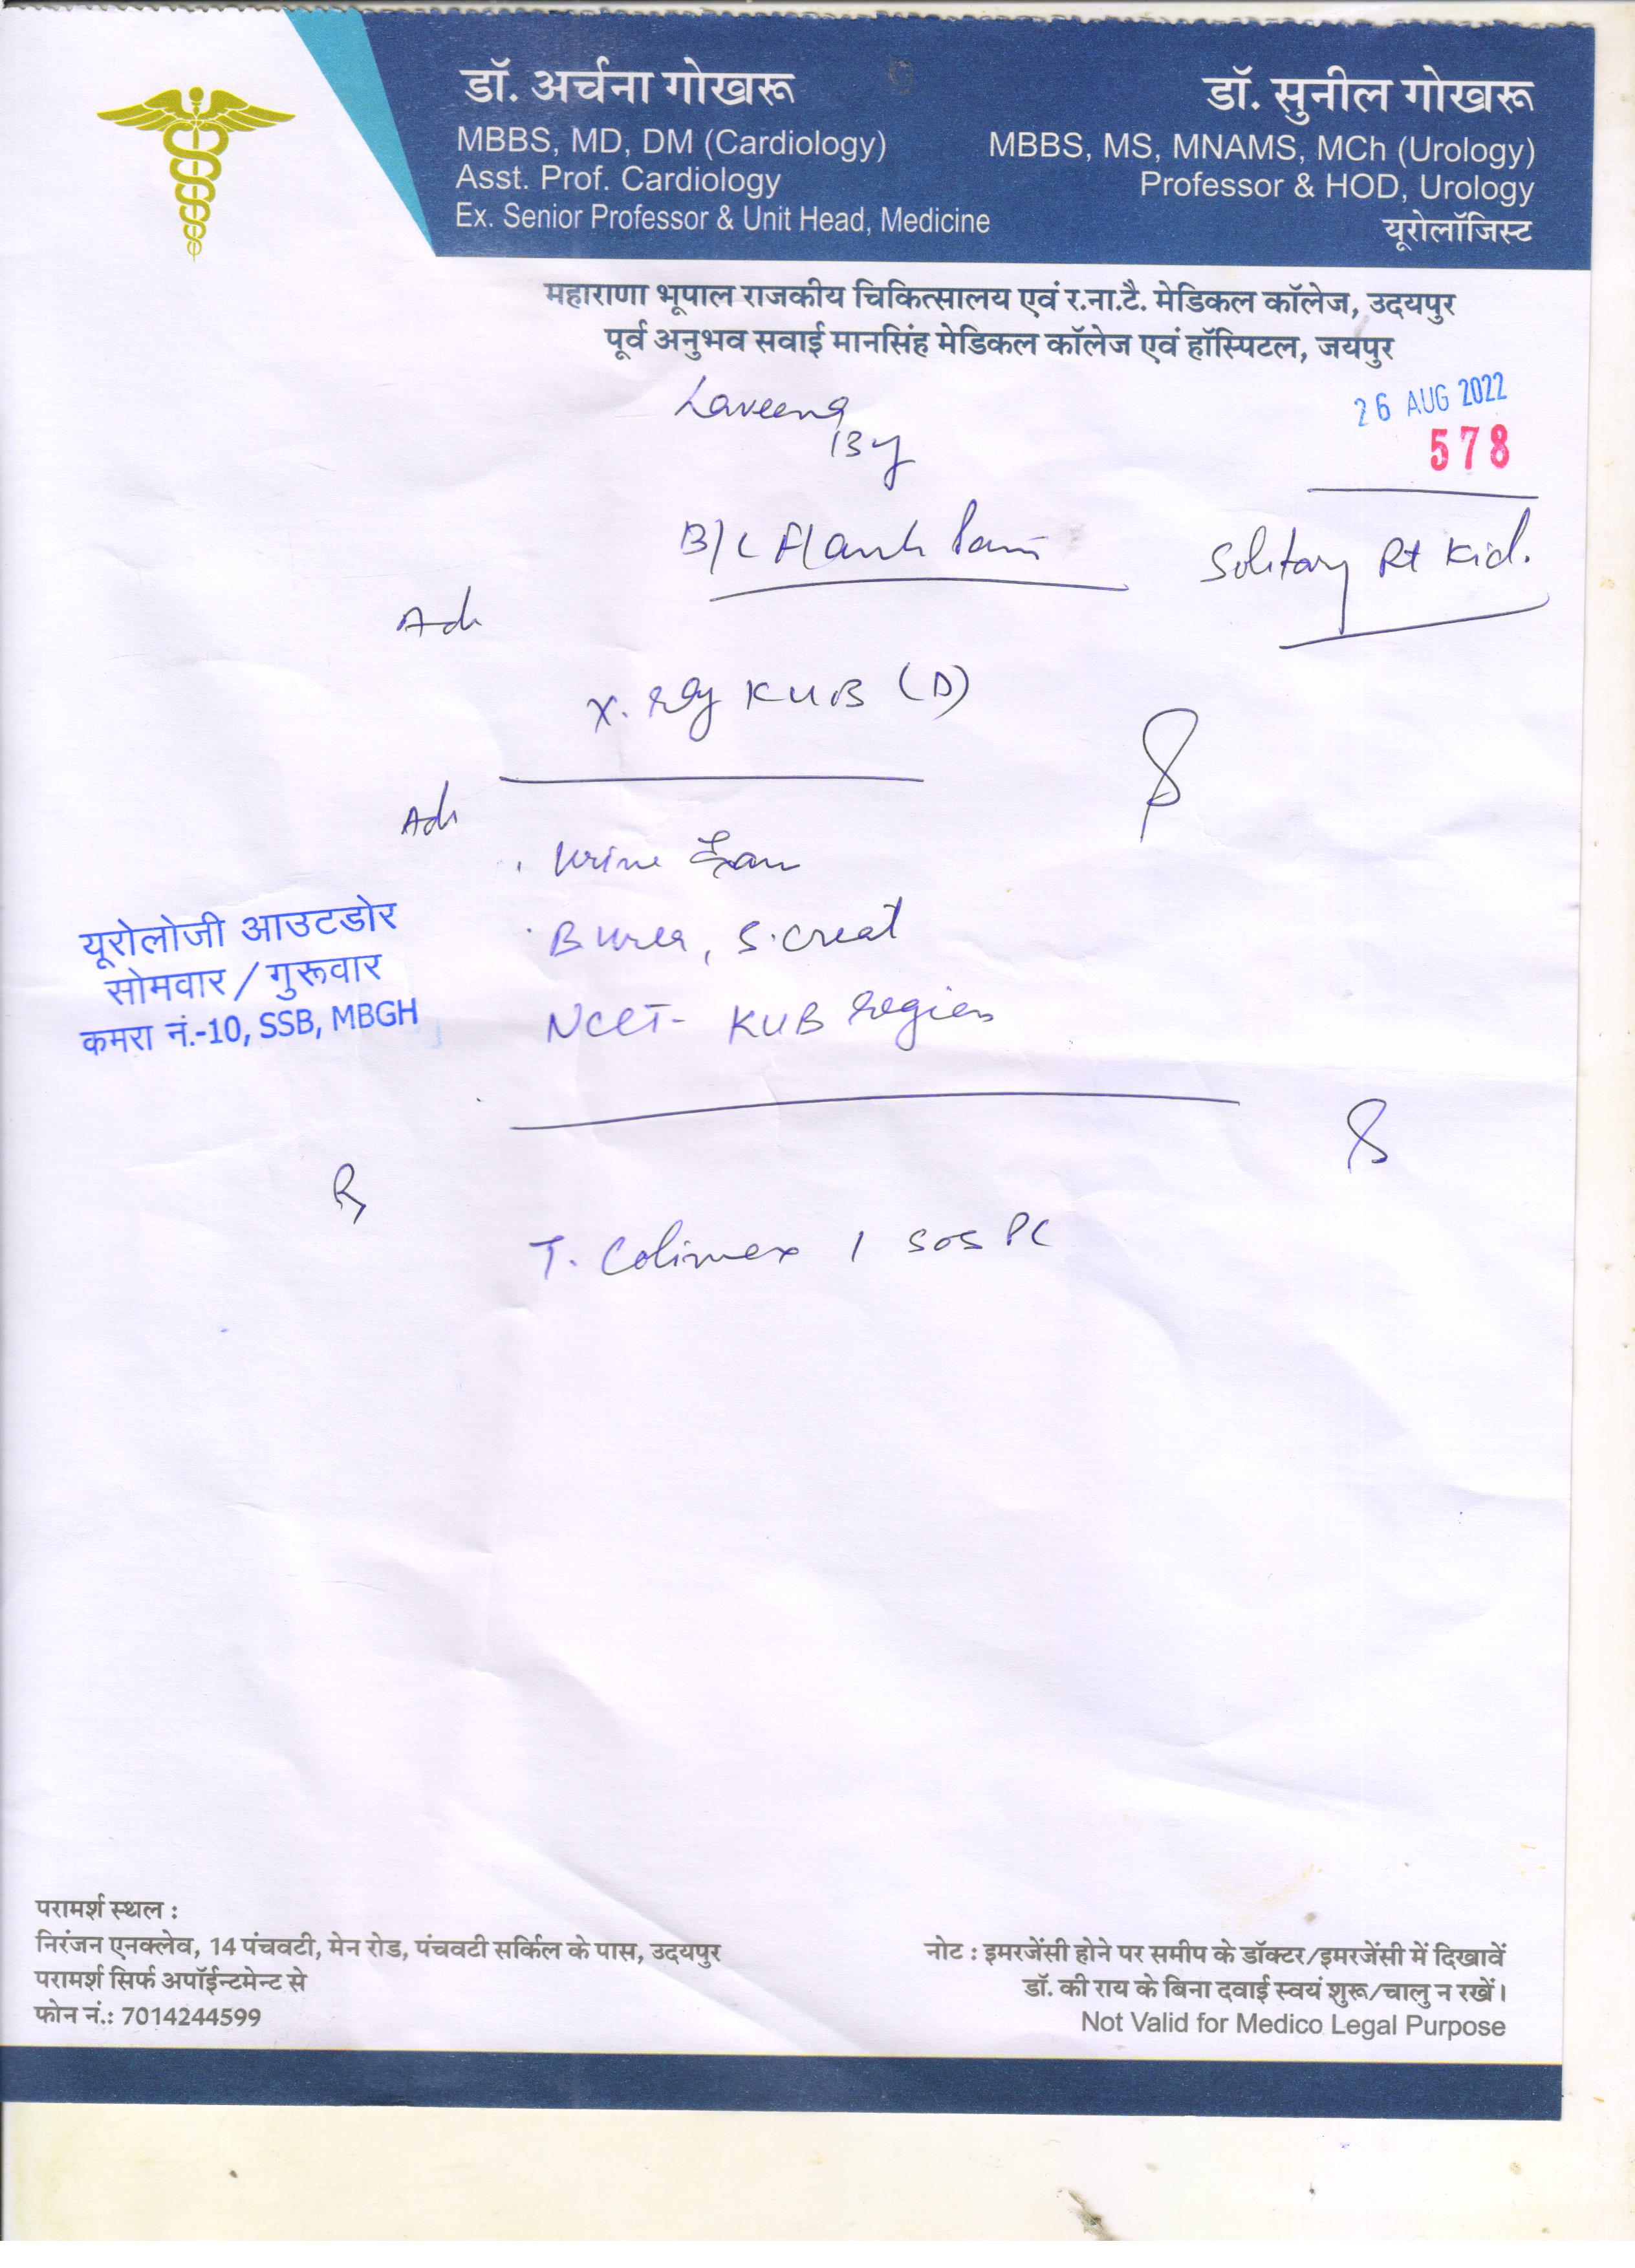 डॉ. अर्चना गोखरू
MBBS, MD, DM (Cardiology)
Asst. Prof. Cardiology
Ex. Senior Professor & Unit Head, Medicine
डॉ. सुनील गोखरू
MBBS, MS, MNAMS, MCh (Urology)
Professor & HOD, Urology
यूरोलॉजिस्ट
महाराणा भूपाल राजकीय चिकित्सालय एवं र.ना.टै. मेडिकल कॉलेज, उदयपुर
पूर्व अनुभव सवाई मानसिंह मेडिकल कॉलेज एवं हॉस्पिटल, जयपुर
26 AUG 2022
578
Laveena
13y
B/L Flank Pain
Solitary Rt Kid.
Adv
X. Ray KUB (D)
Adv
Urine Exam
B urea, S. creat
NCCT- KUB region
यूरोलोजी आउटडोर
सोमवार / गुरूवार
कमरा नं.-10, SSB, MBGH
Rx
T. Colimex 1 SOS PC
परामर्श स्थल :
निरंजन एनक्लेव, 14 पंचवटी, मेन रोड, पंचवटी सर्किल के पास, उदयपुर
परामर्श सिर्फ अपॉईन्टमेन्ट से
फोन नं.: 7014244599
नोट : इमरजेंसी होने पर समीप के डॉक्टर/इमरजेंसी में दिखावें
डॉ. की राय के बिना दवाई स्वयं शुरू/चालु न रखें।
Not Valid for Medico Legal Purpose